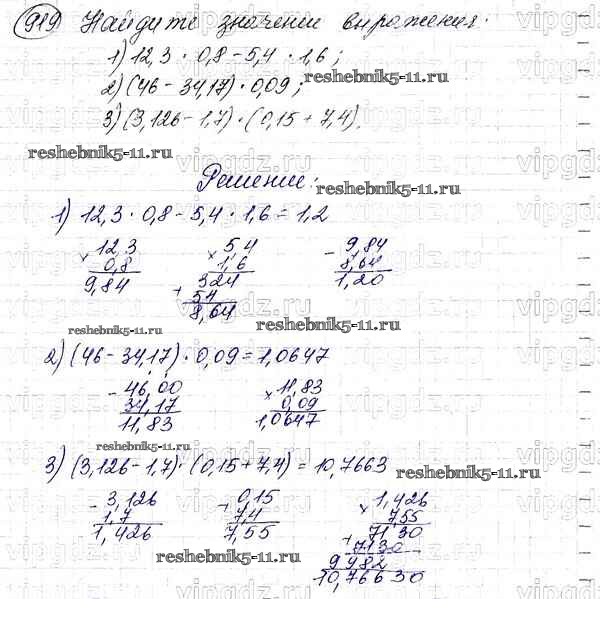 919 Найдите значении выражения:
1) 12,3 · 0,8 - 5,4 · 1,6;
2) (46 - 34,17) · 0,09;
reshebnik5-11.ru
3) (3,126 - 1,7) · (0,15 + 7,4).
reshebnik5-11.ru
Решение:
reshebnik5-11.ru
1) 12,3 · 0,8 - 5,4 · 1,6 = 1,2
× 12,3 × 5,4 - 9,84
0,8 1,6 8,64
9,84 324 1,20
+ 54
8,64
reshebnik5-11.ru reshebnik5-11.ru
2) (46 - 34,17) · 0,09 = 1,0647
- 46,00 × 11,83
34,17 0,09
11,83 1,0647
reshebnik5-11.ru
3) (3,126 - 1,7) · (0,15 + 7,4) = 10,7663
reshebnik5-11.ru
- 3,126 + 0,15 × 1,426
1,7 7,4 7,55
1,426 7,55 7130
+ 7130
reshebnik5-11.ru
9982
10,76630
vipgdz.ru